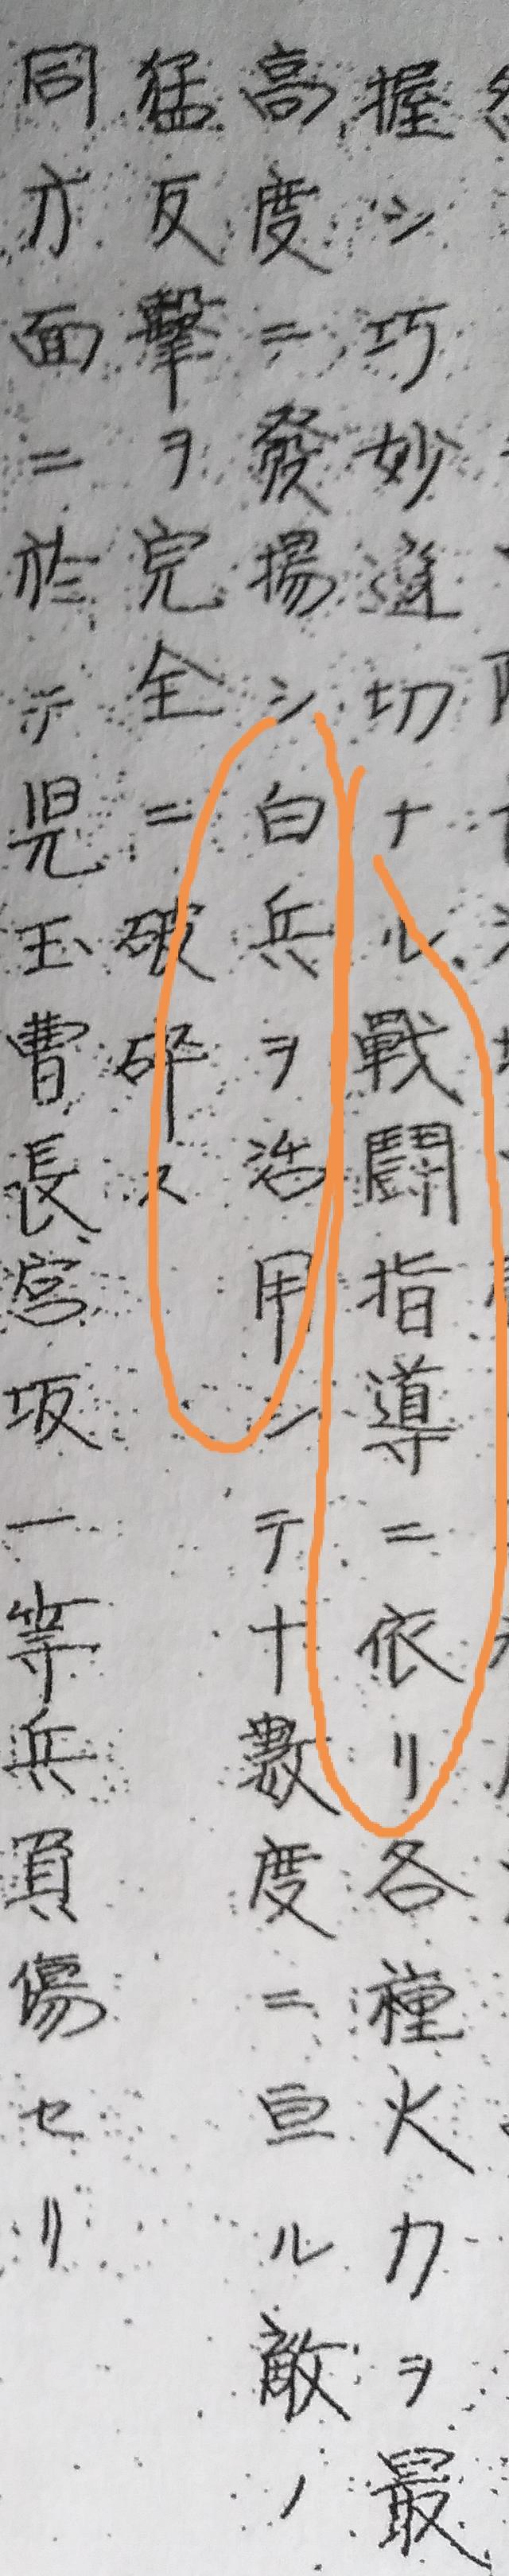 握シ巧妙適切ナル戰鬪指導ニ依リ各種火力ヲ最
高度ニ發揚シ白兵ヲ活用シテ十數度ニ亘ル敵ノ
猛反擊ヲ完全ニ破碎ス
同方面ニ於テ児玉曹長宮坂一等兵負傷セリ